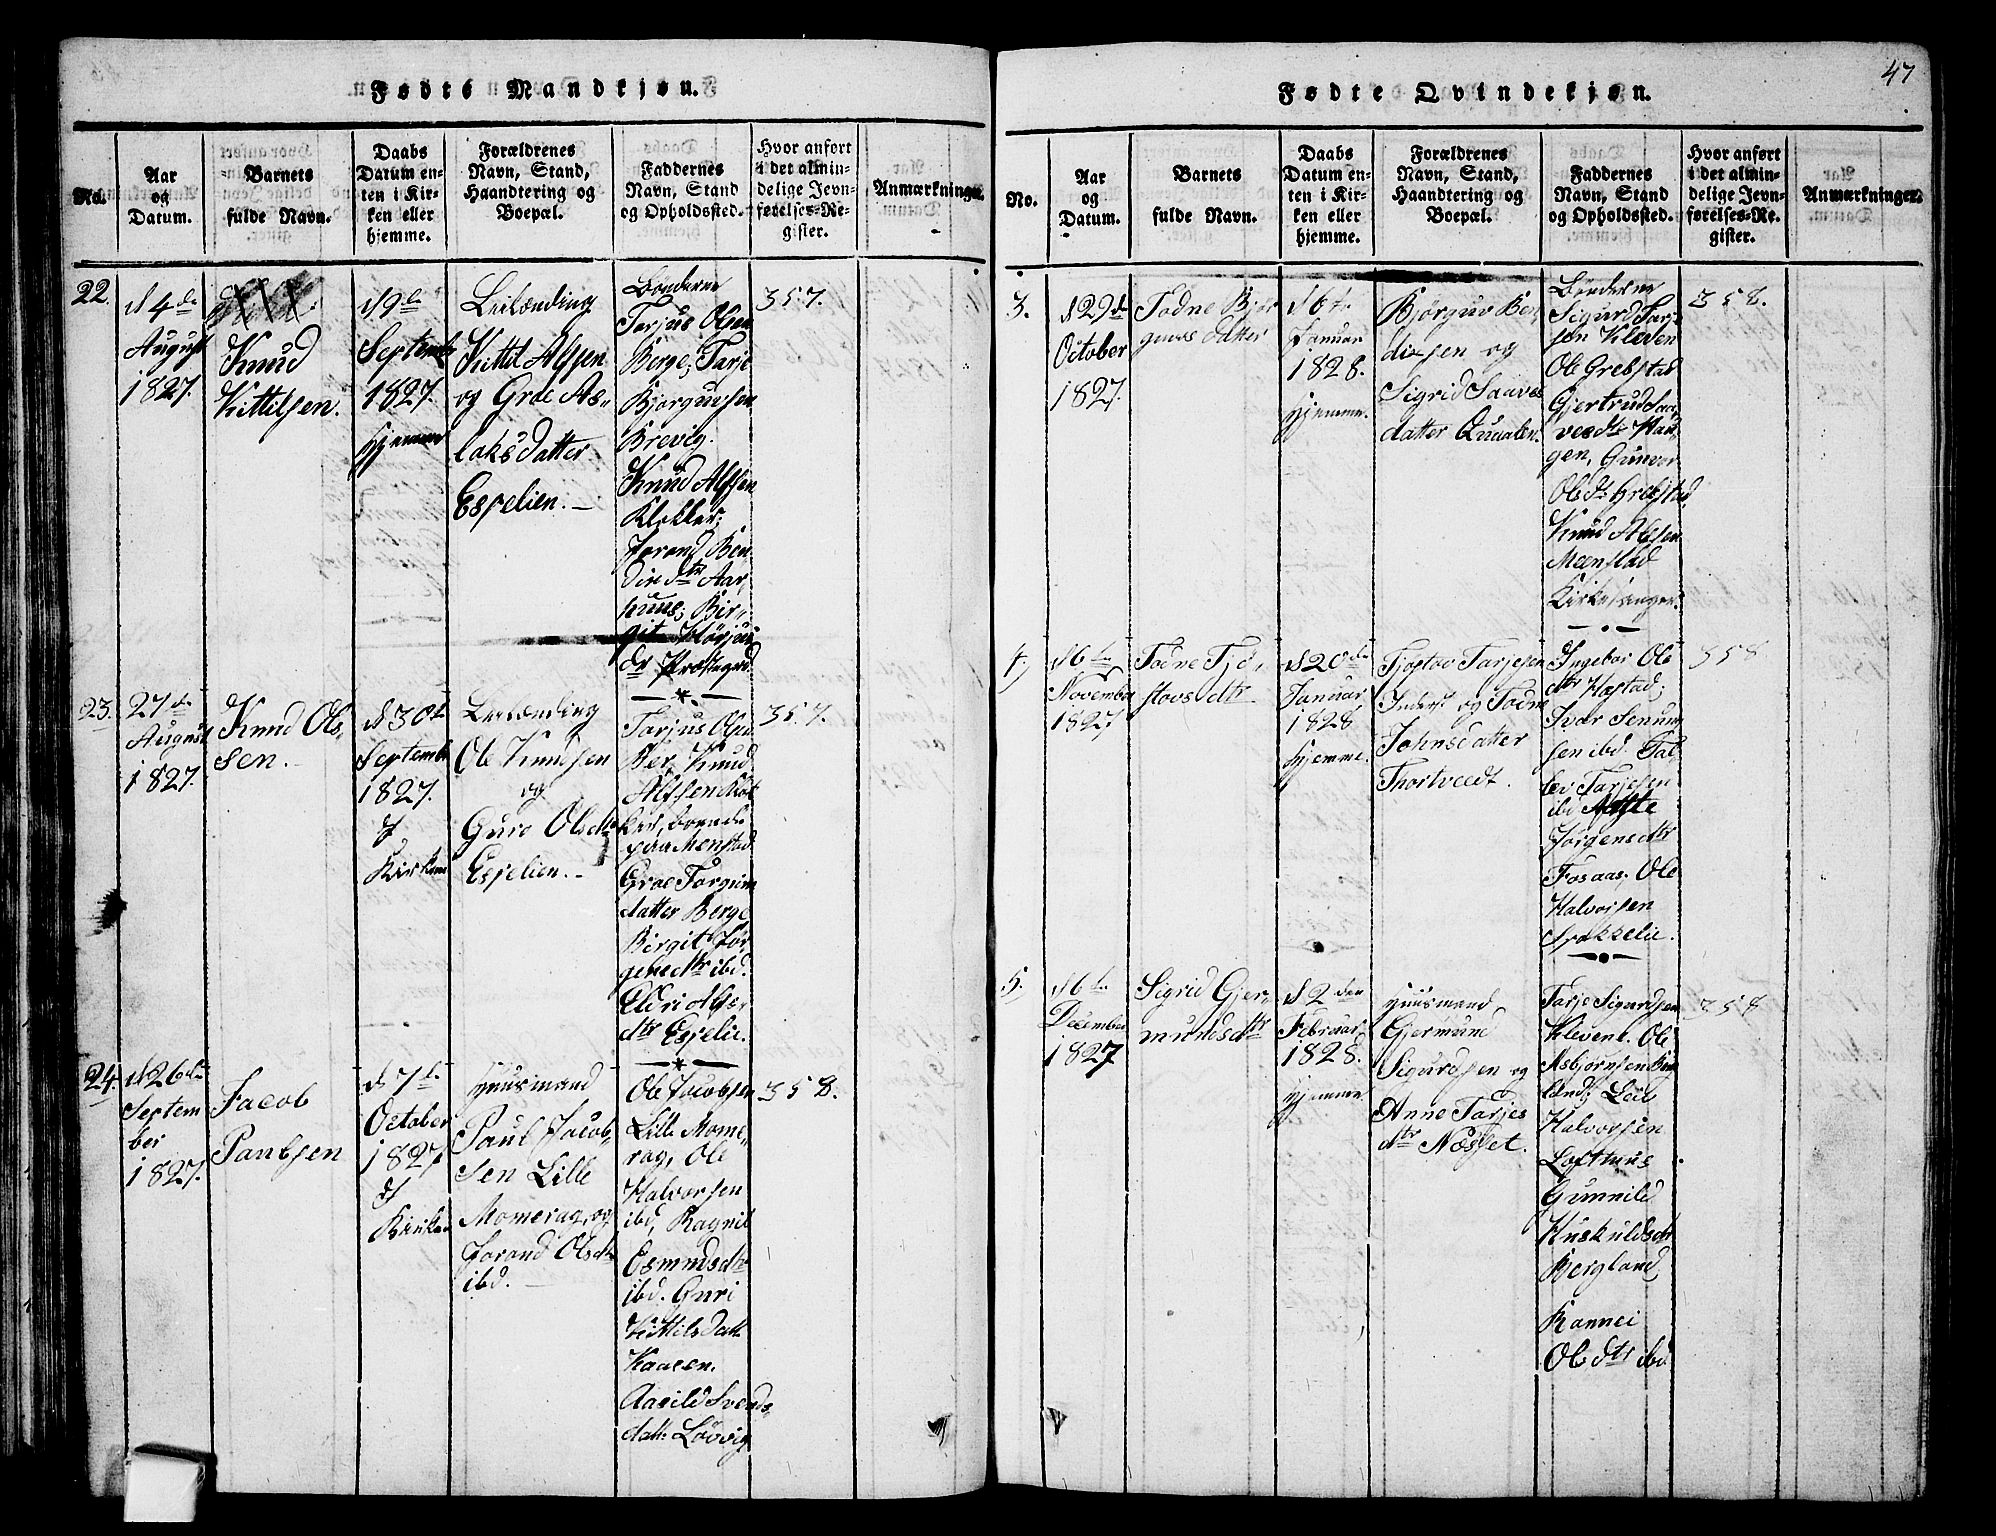 Fødte Mandkjøn.
No.
Aar
og
Datum.
Barnets
fulde Navn.
Daabs
Datum en-
ten i Kir-
ken eller
hjemme.
Forældrenes
Navn, Stand,
Haandtering og
Boepæl.
Faddernes
Navn, Stand
og Opholdssted.
Hvor anført
i det almin-
delige Jevn-
førelses-Re-
gister.
Anmærkninger.
22.
d 4de
August
1827.
Knud
Kittilsen.
d 9de
Septemb
1827
Hjemme
Leilænding
Kittil Alfsen
og Groe As-
laksdatter
Espelien.
Bönderne
Tarjus Olsen
Berge; Tarje
Bjorguvsen
Brevig.
Knud Alfsen
Klokker;
Jorand Ben
dixdtr Aar
huus; Bir-
git Hörjus
dr Præstegrd.
357.
23.
27de
August
1827.
Knud Ol-
sen.
d 30te
Septemb
1827.
i
Kirken
Leilænding
Ole Knudsen
og
Guro Olsdtr
Espelien.
Tarjus Olsen
Ber. Knud
Alfsen Klok
ker, boende
paa Menstad.
Groe Torgrim
datter Berge
Birgit Jör
gensdtr ibd.
Eldri Alfs-
dtr Espelie.
357.
24.
d 26de
Septem
ber
1827.
Jacob
Paulsen
d 7de
October
1827
i
Kirken
Huusmand
Paul Jacob-
sen Lille
Momerag, og
Jorand Olsdtr
ibd.
Ole Jacobsen
Lille Mome-
rag, Ole
Halvorsen
ibd, Ragnil
Esmundsdtr
ibd. Guri
Kittilsdatt
Kaasen.
Aasild Svends
datt. Lövvig
358.
47
Fødte Qvindekjøn.
No.
Aar
og
Datum.
Barnets
fulde Navn.
Daabs
Datum en-
ten i Kir-
ken eller
hjemme.
Forældrenes
Navn, Stand,
Haandtering og
Boepæl.
Faddernes
Navn, Stand
og Opholdssted.
Hvor anført
i det almin-
delige Jevn-
førelses-Re-
gister.
Anmærkninger.
3.
d 29de
October
1827.
Todne Bjør
guvs datter
d 6te
Januar
1828.
Hjemme.
Björguv Ben
dixsen og
Sigrid Saaves
datter Qvaalen.
Bönderne
Sigurd Tarje
sön Kleven
Ole Grebstad
Gjertrud Saa
vesdtr Hau
gen, Gunvor
Olsdr Grebstad,
Knud Alfsen
Mænstad
Kirkesanger.
358.
4.
d 6te
November
1827
Todne Tjö-
stovsdtr
d 20de
Januar,
1828
Hjemme.
Tjostov Tarjesen
Inderst og Todne
Johnsdatter
Thortveedt.
Ingebor Ols
dtr Hæstad;
Ivar Senum
sen ibd. Tal
lev Tarjesen
ibd Aaste
Jörgensdtr
Fosaas, Ole
Halvorsen
358
5.
d 6te
December
1827
Sigrid Gjer-
mundsdtr
d 2den
Februar,
1828.
Hjemme.
Huusmand
Gjermund
Sigurdsen og
Anne Tarjes
dtr Næsset.
Tarje Sigurdsen
Klevene. Ole
Asbjörnsen Berg
land; Leiv
Halvorsen
Lofthuus
Gunnild
Huskuldsdtr
Bergland
Rannei
Olsdtr ibd
358